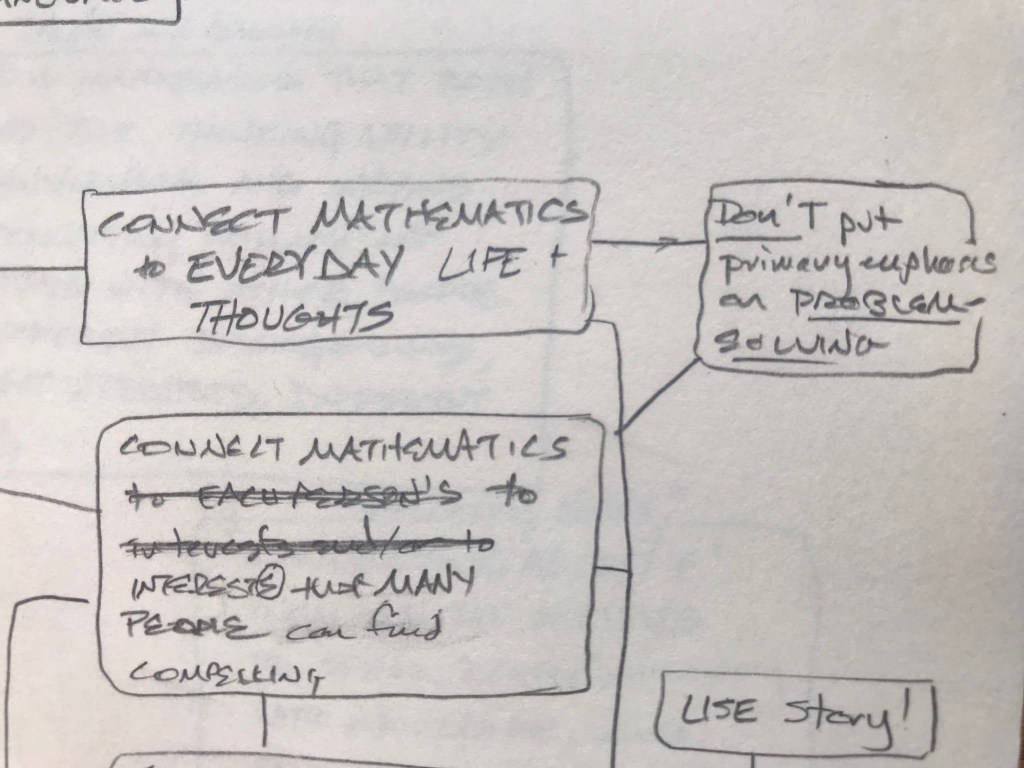 CONNECT MATHEMATICS
to EVERYDAY LIFE +
THOUGHTS
DON'T put
primary emphasis
on PROBLEM-
SOLVING
CONNECT MATHEMATICS
to EACH PERSON'S to
interests and/or to
INTERESTS that MANY
PEOPLE can find
COMPELLING
USE Story!